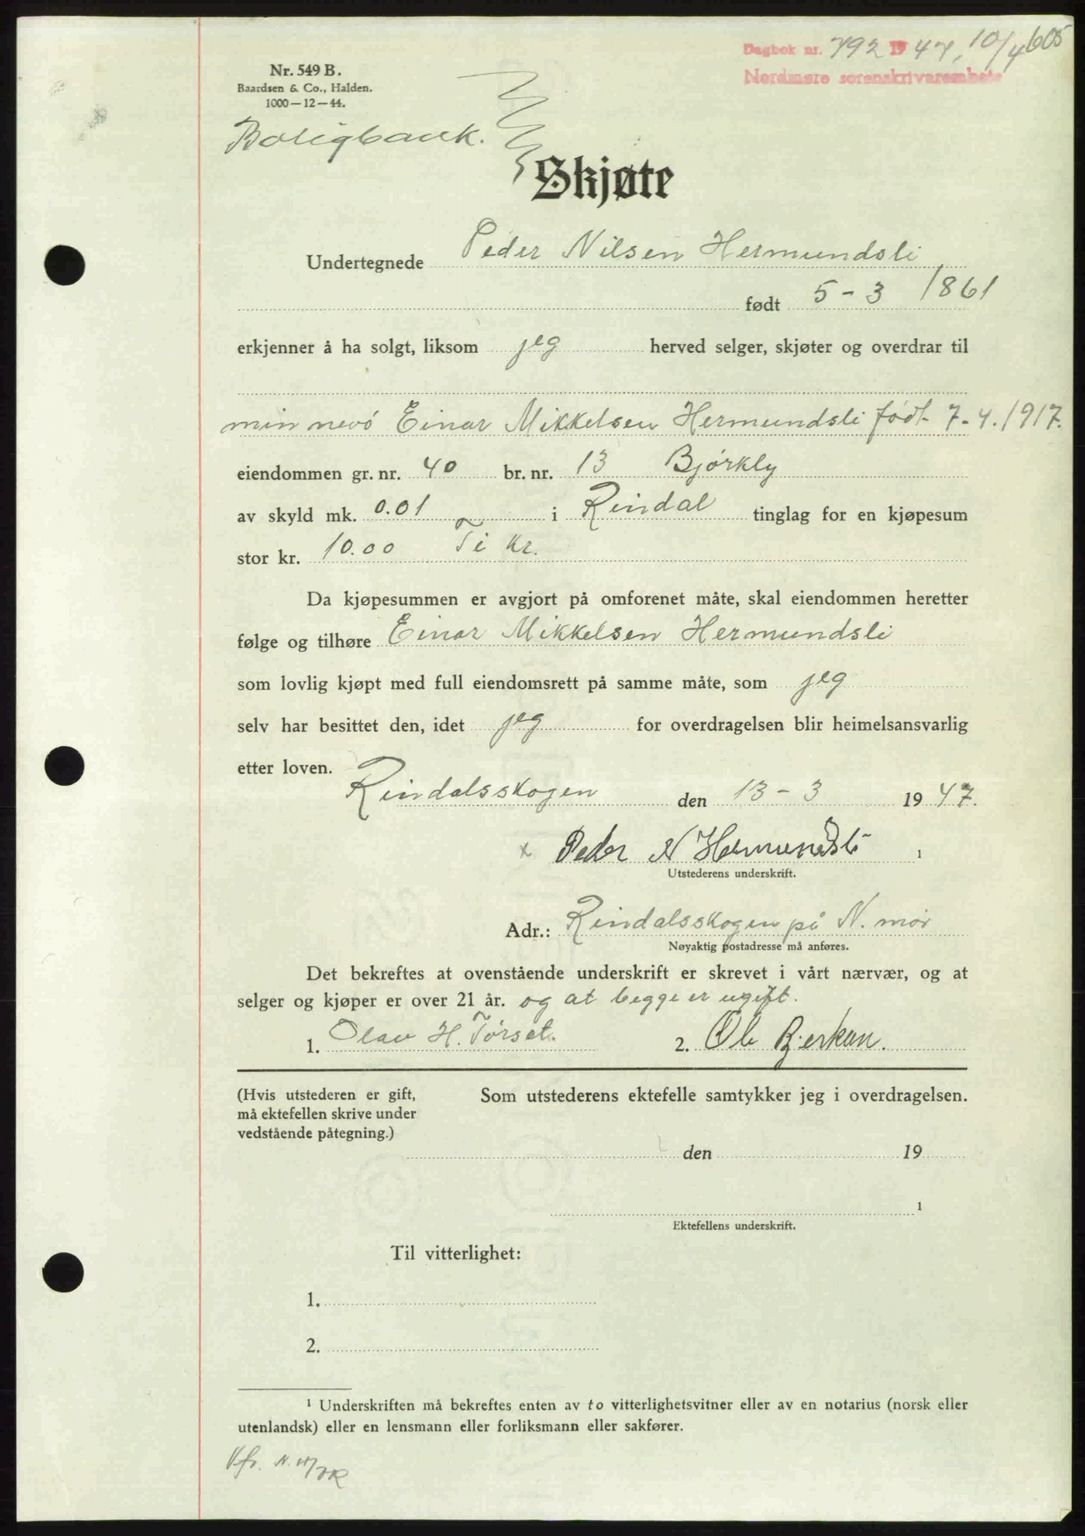 Dagbok nr. 792 1947, 10/4 605
Nordmøre sorenskrivarembete
Nr. 549 B.
Baardsen & Co., Halden.
1000—12—44.
Boligbank.
Skjøte
Undertegnede Peder Nilsen Hermundsli
født 5-3 1861
erkjenner å ha solgt, liksom jeg herved selger, skjøter og overdrar til
min nevö Einar Mikkelsen Hermundsli födt 7-4.1917.
eiendommen gr. nr. 40 br. nr. 13 Bjørkly
av skyld mk. 0.01 i Rindal tinglag for en kjøpesum
stor kr. 10.00 Ti kr.
Da kjøpesummen er avgjort på omforenet måte, skal eiendommen heretter
følge og tilhøre Einar Mikkelsen Hermundsli
som lovlig kjøpt med full eiendomsrett på samme måte, som jeg
selv har besittet den, idet jeg for overdragelsen blir heimelsansvarlig
etter loven.
Rindalsskogen den 13-3 1947.
x Peder N Hermundsli 1
Utstederens underskrift.
Adr.: Rindalsskogen på N. mör
Nøyaktig postadresse må anføres.
Det bekreftes at ovenstående underskrift er skrevet i vårt nærvær, og at
selger og kjøper er over 21 år. og at begge er ugift.
1. Olav H. Törset. 2. Ole Bjerkan.
(Hvis utstederen er gift, Som utstederens ektefelle samtykker jeg i overdragelsen.
må ektefellen skrive under
vedstående påtegning.)
den 19
1
Ektefellens underskrift.
Til vitterlighet:
1.
2.
1 Underskriften må bekreftes enten av to vitterlighetsvitner eller av en notarius (norsk eller
utenlandsk) eller en lensmann eller forliksmann eller sakfører.